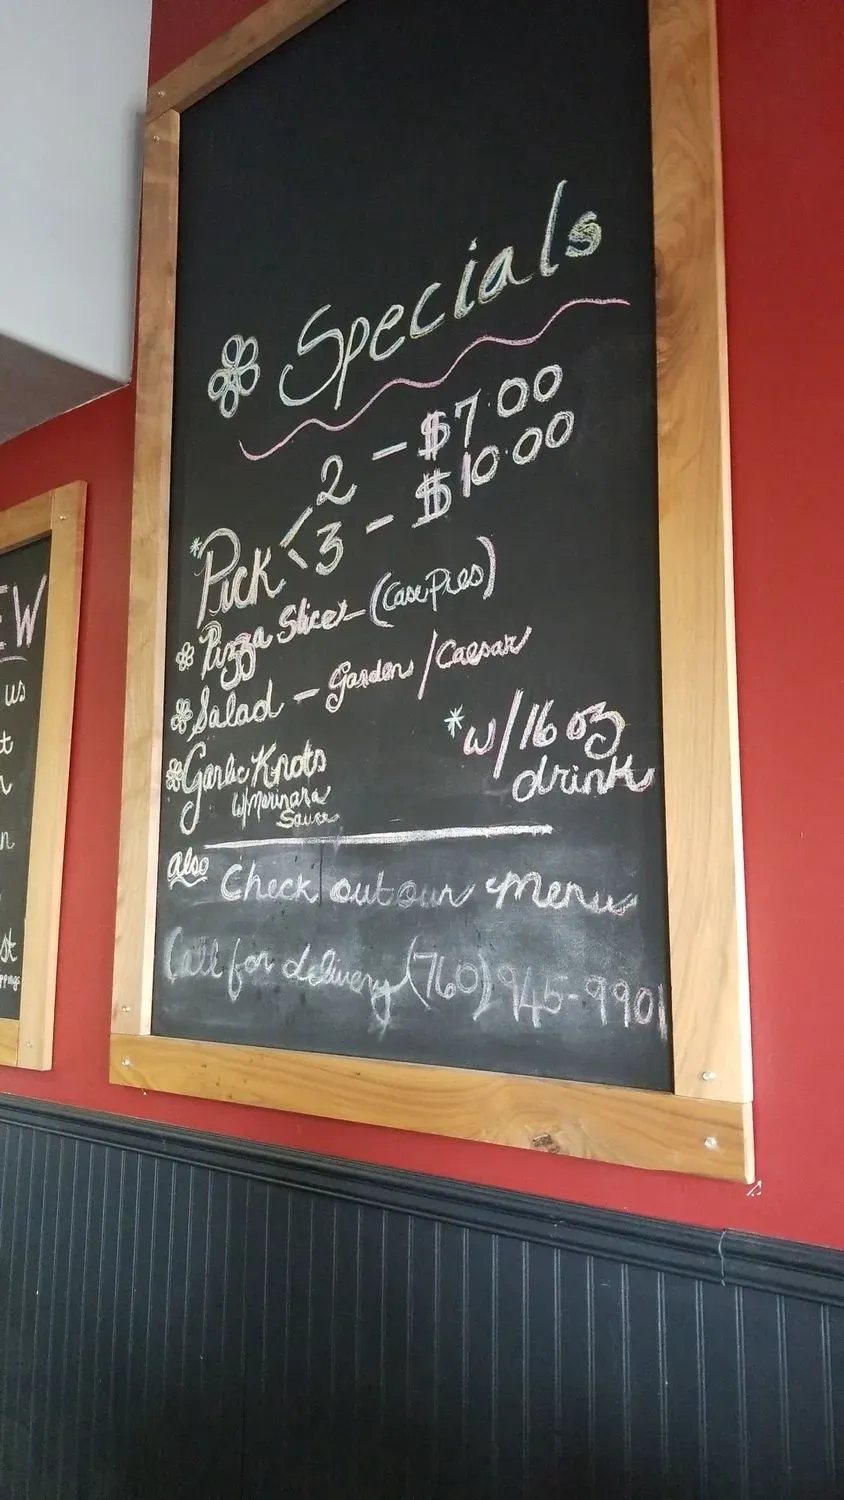 Specials
2 - $7.00
*Pick < 3 - $10.00
Pizza Slices - (Case Pies)
Salad - Garden / Caesar
Garlic Knots
w/Merinara
Sauce
*w/16 oz
drink
also
Check out our menu
Call for delivery (760) 945-9901
EW
us